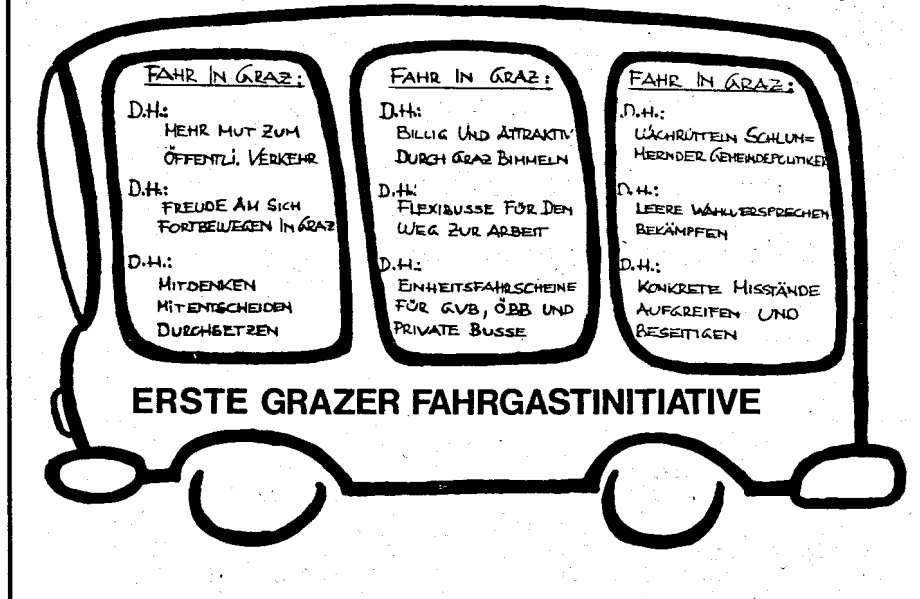 FAHR IN GRAZ:
D.H.:
MEHR MUT ZUM
ÖFFENTLI. VERKEHR
D.H.:
FREUDE AM SICH
FORTBEWEGEN IN GRAZ
D.H.:
MITDENKEN
MITENTSCHEIDEN
DURCHSETZEN
FAHR IN GRAZ:
D.H.:
BILLIG UND ATTRAKTIV
DURCH GRAZ BIMMELN
D.H.:
FLEXIBUSSE FÜR DEN
WEG ZUR ARBEIT
D.H.:
EINHEITSFAHRSCHEINE
FÜR GVB, ÖBB UND
PRIVATE BUSSE
FAHR IN GRAZ:
D.H.:
WACHRÜTTELN SCHLUM=
MERNDER GEMEINDEPOLITIKER
D.H.:
LEERE WAHLVERSPRECHEN
BEKÄMPFEN
D.H.:
KONKRETE MISSTÄNDE
AUFGREIFEN UND
BESEITIGEN
ERSTE GRAZER FAHRGASTINITIATIVE